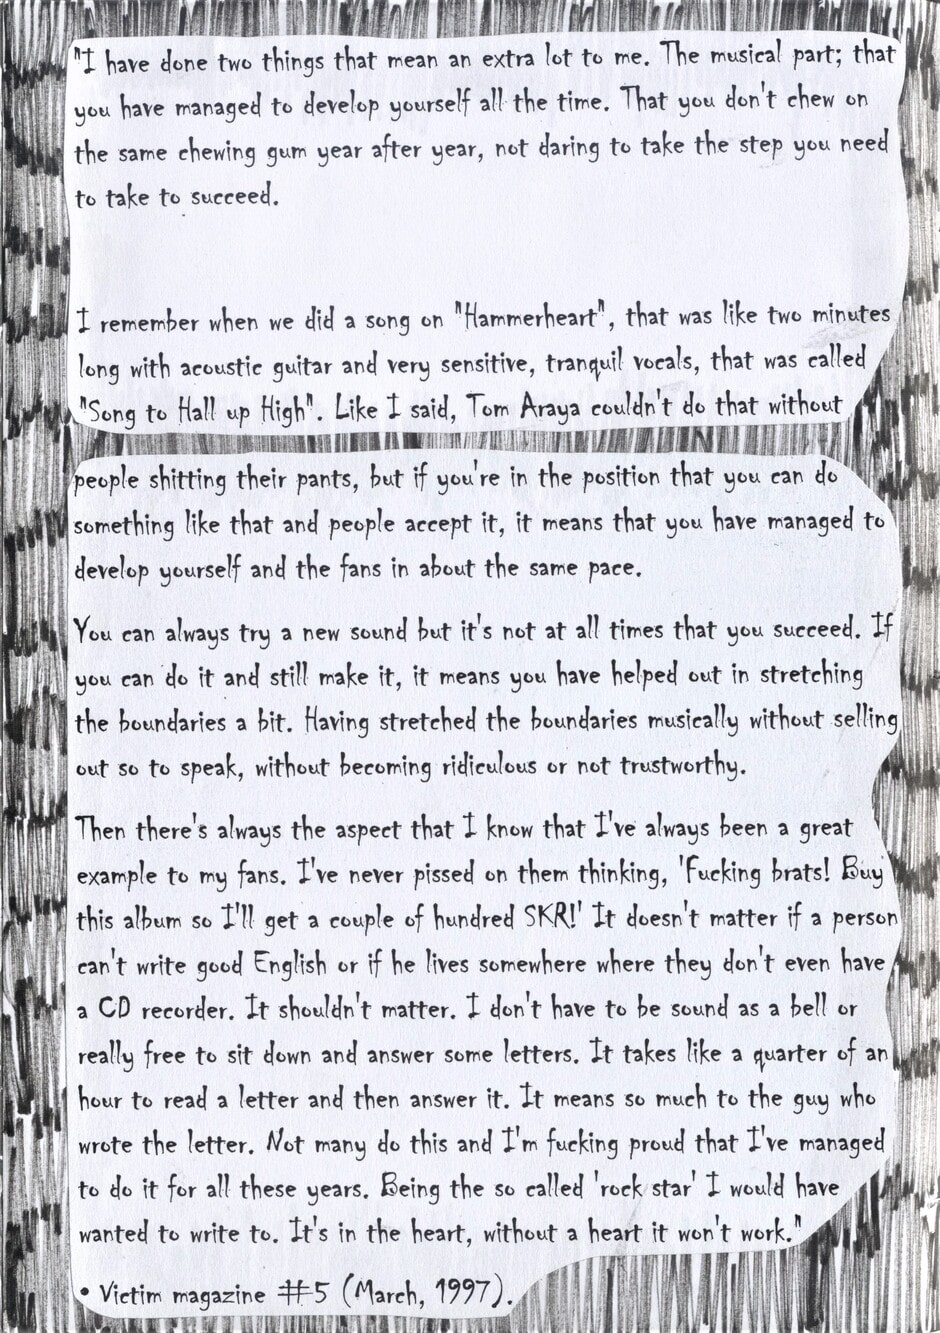 "I have done two things that mean an extra lot to me. The musical part; that
you have managed to develop yourself all the time. That you don't chew on
the same chewing gum year after year, not daring to take the step you need
to take to succeed.
I remember when we did a song on "Hammerheart", that was like two minutes
long with acoustic guitar and very sensitive, tranquil vocals, that was called
"Song to Hall up High". Like I said, Tom Araya couldn't do that without
people shitting their pants, but if you're in the position that you can do
something like that and people accept it, it means that you have managed to
develop yourself and the fans in about the same pace.
You can always try a new sound but it's not at all times that you succeed. If
you can do it and still make it, it means you have helped out in stretching
the boundaries a bit. Having stretched the boundaries musically without selling
out so to speak, without becoming ridiculous or not trustworthy.
Then there's always the aspect that I know that I've always been a great
example to my fans. I've never pissed on them thinking, 'Fucking brats! Buy
this album so I'll get a couple of hundred SKR!' It doesn't matter if a person
can't write good English or if he lives somewhere where they don't even have
a CD recorder. It shouldn't matter. I don't have to be sound as a bell or
really free to sit down and answer some letters. It takes like a quarter of an
hour to read a letter and then answer it. It means so much to the guy who
wrote the letter. Not many do this and I'm fucking proud that I've managed
to do it for all these years. Being the so called 'rock star' I would have
wanted to write to. It's in the heart, without a heart it won't work."
• Victim magazine #5 (March, 1997).